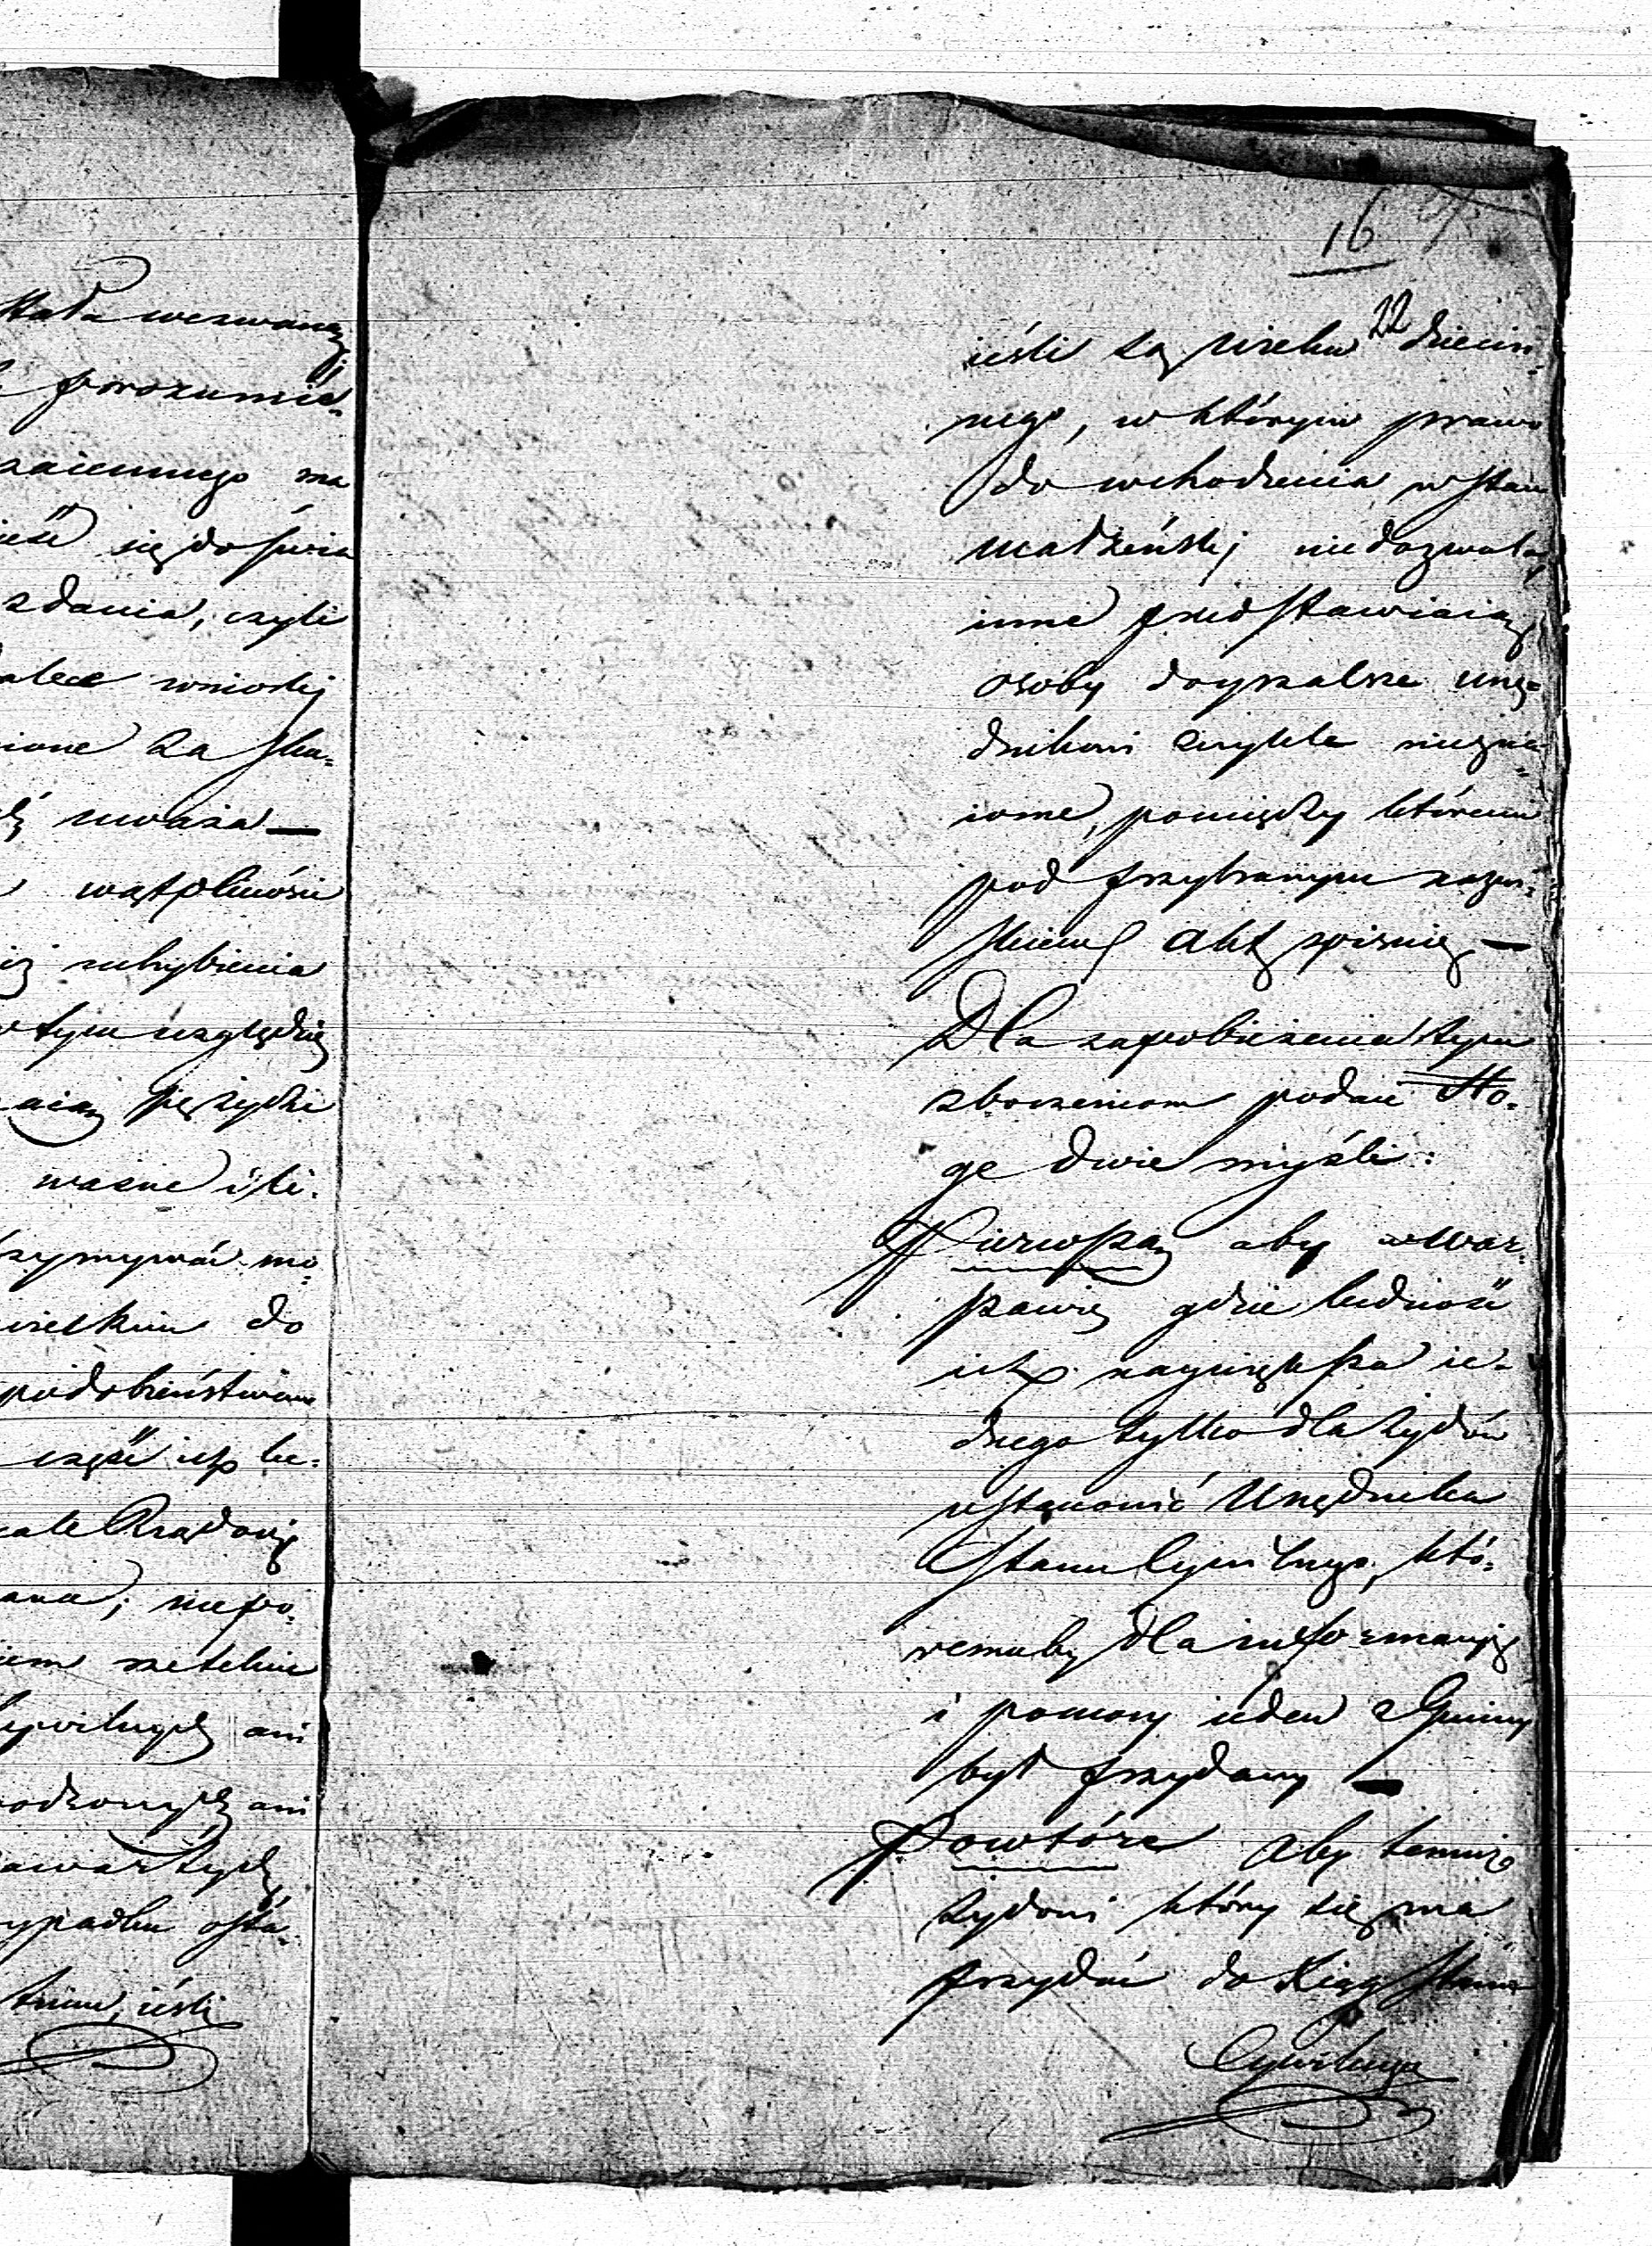 Rada wezwana
porozumie-
zaiemnego ma
się do świa
zdania, czyli
wniosły
ione za sku-
uważa —
wątpliwości
uchybienia
tym względzie
się życie
ważne i
zymywać mo-
wielkim do
podobieństwem
część ich lu-
Rządowi
niepo-
rzetelnie
Cywilnych ani
ani
zawartych
ypadku osta-
tnim, ieśli
16
22
ieśli są wieku dziecin-
nego, w którym prawo
do wchodzenia w stan
małżeński niedozwala,
inne przedstawiaią
osoby doyrzalsze urzę-
dnikowi zwykle niezna-
iome, pomiędzy któremi
pod przybranym nazwi-
skiem akt spisuie —
Dla zapobieżenia tym
zboczeniom podaię Mo-
gę dwie myśli:
Pierwszą aby w War-
szawie gdzie ludność
ich naywiększa ie-
dnego tylko dla Żydów
ustanowić Urzędnika
Stanu Cywilnego, któ-
remuby dla informacyi
i pomocy ieden z Gminy
był przydany —
Powtóre aby temuż
żydowi który się ma
przydać do Xiąg Stanu
Cywilnego